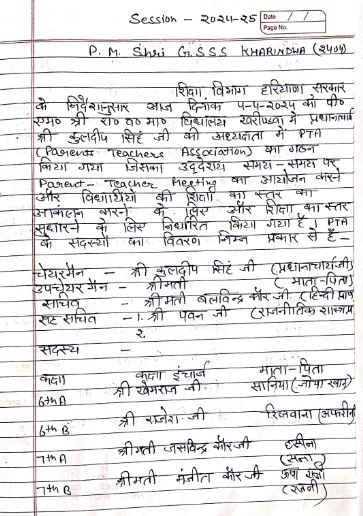 Session - 2024-25
Date
Page No.
P. M. Shri G.SSS KHARINDWA (2404)
शिक्षा विभाग हरियाणा सरकार
के निर्देशानुसार आज दिनांक 5-4-2024 को पी०
एम० श्री रा० व० मा० विद्यालय खरीण्डवा में प्रधानाचार्य
श्री कुलदीप सिंह जी की अध्यक्षता में PTA
(Parents Teachers Association) का गठन
किया गया जिसका उद्देश्य समय-समय पर
Parent-Teacher Meeting का आयोजन करने
और विद्यार्थियों की शिक्षा का स्तर का
आकलन करने के लिए और शिक्षा का स्तर
सुधारने के लिए निर्धारित किया गया है। PTA
के सदस्यों का विवरण निम्न प्रकार से है-
चेयरमैन - श्री कुलदीप सिंह जी (प्रधानाचार्य जी)
उपचेयरमैन - श्रीमती (माता-पिता)
सचिव - श्रीमती बलविन्द्र कौर जी (हिन्दी
सह सचिव - 1. श्री पवन जी (राजनीतिक शास्त्र
२.
सदस्य -
कक्षा कक्षा इंचार्ज माता-पिता
6th A श्री खेमराज जी सानिया (जोया खान)
6th B श्री राजेश जी रिजवाना (अफरीन)
7th A श्रीमती जसविन्द्र कौर जी हसीना
(सना)
7th B श्रीमती मंजीत कौर जी